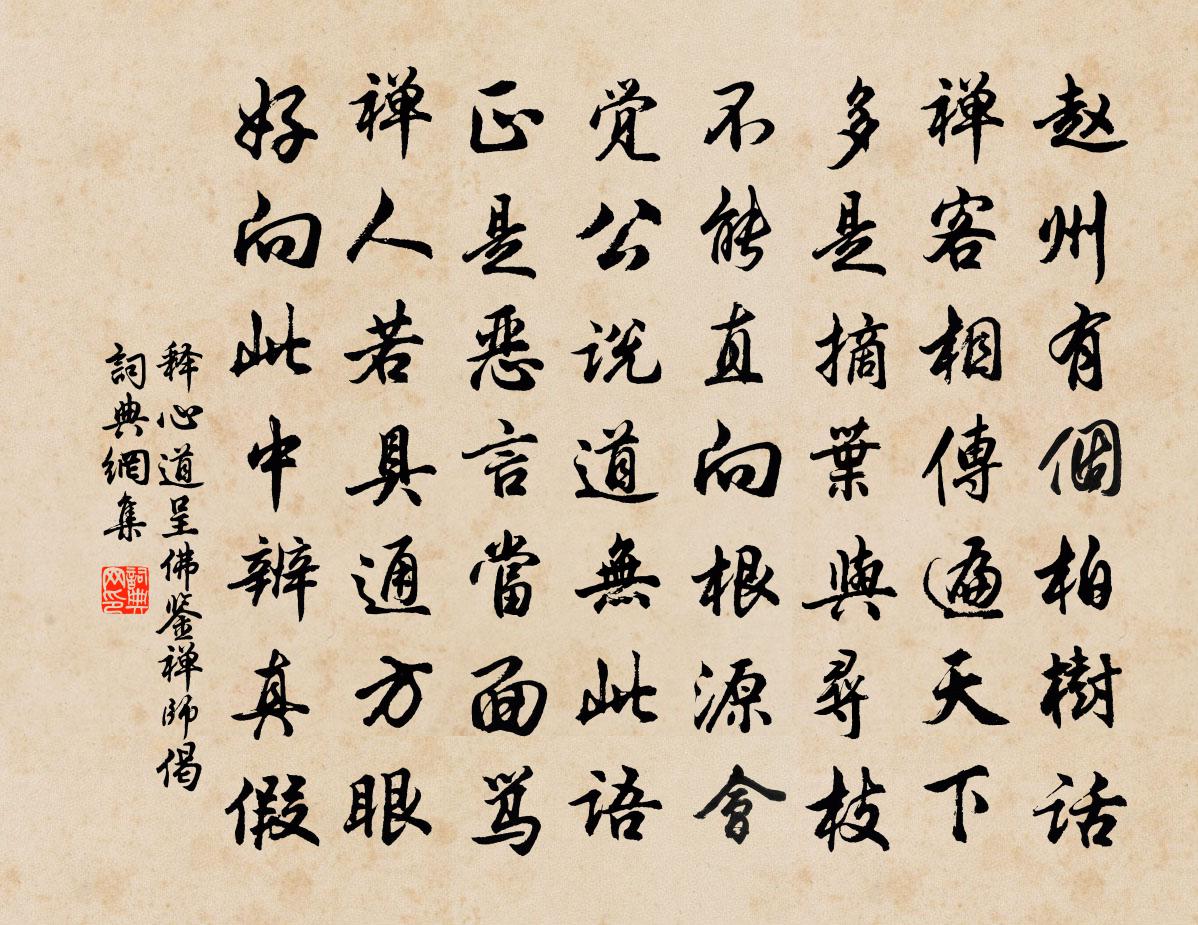 赵州有個柏樹话
禅客相傳遍天下
多是摘葉與尋枝
不能直向根源會
觉公说道無此語
正是恶言當面骂
禅人若具通方眼
好向此中辨真假
释心道呈佛鉴禅師偈
詞典網集
詞典网印